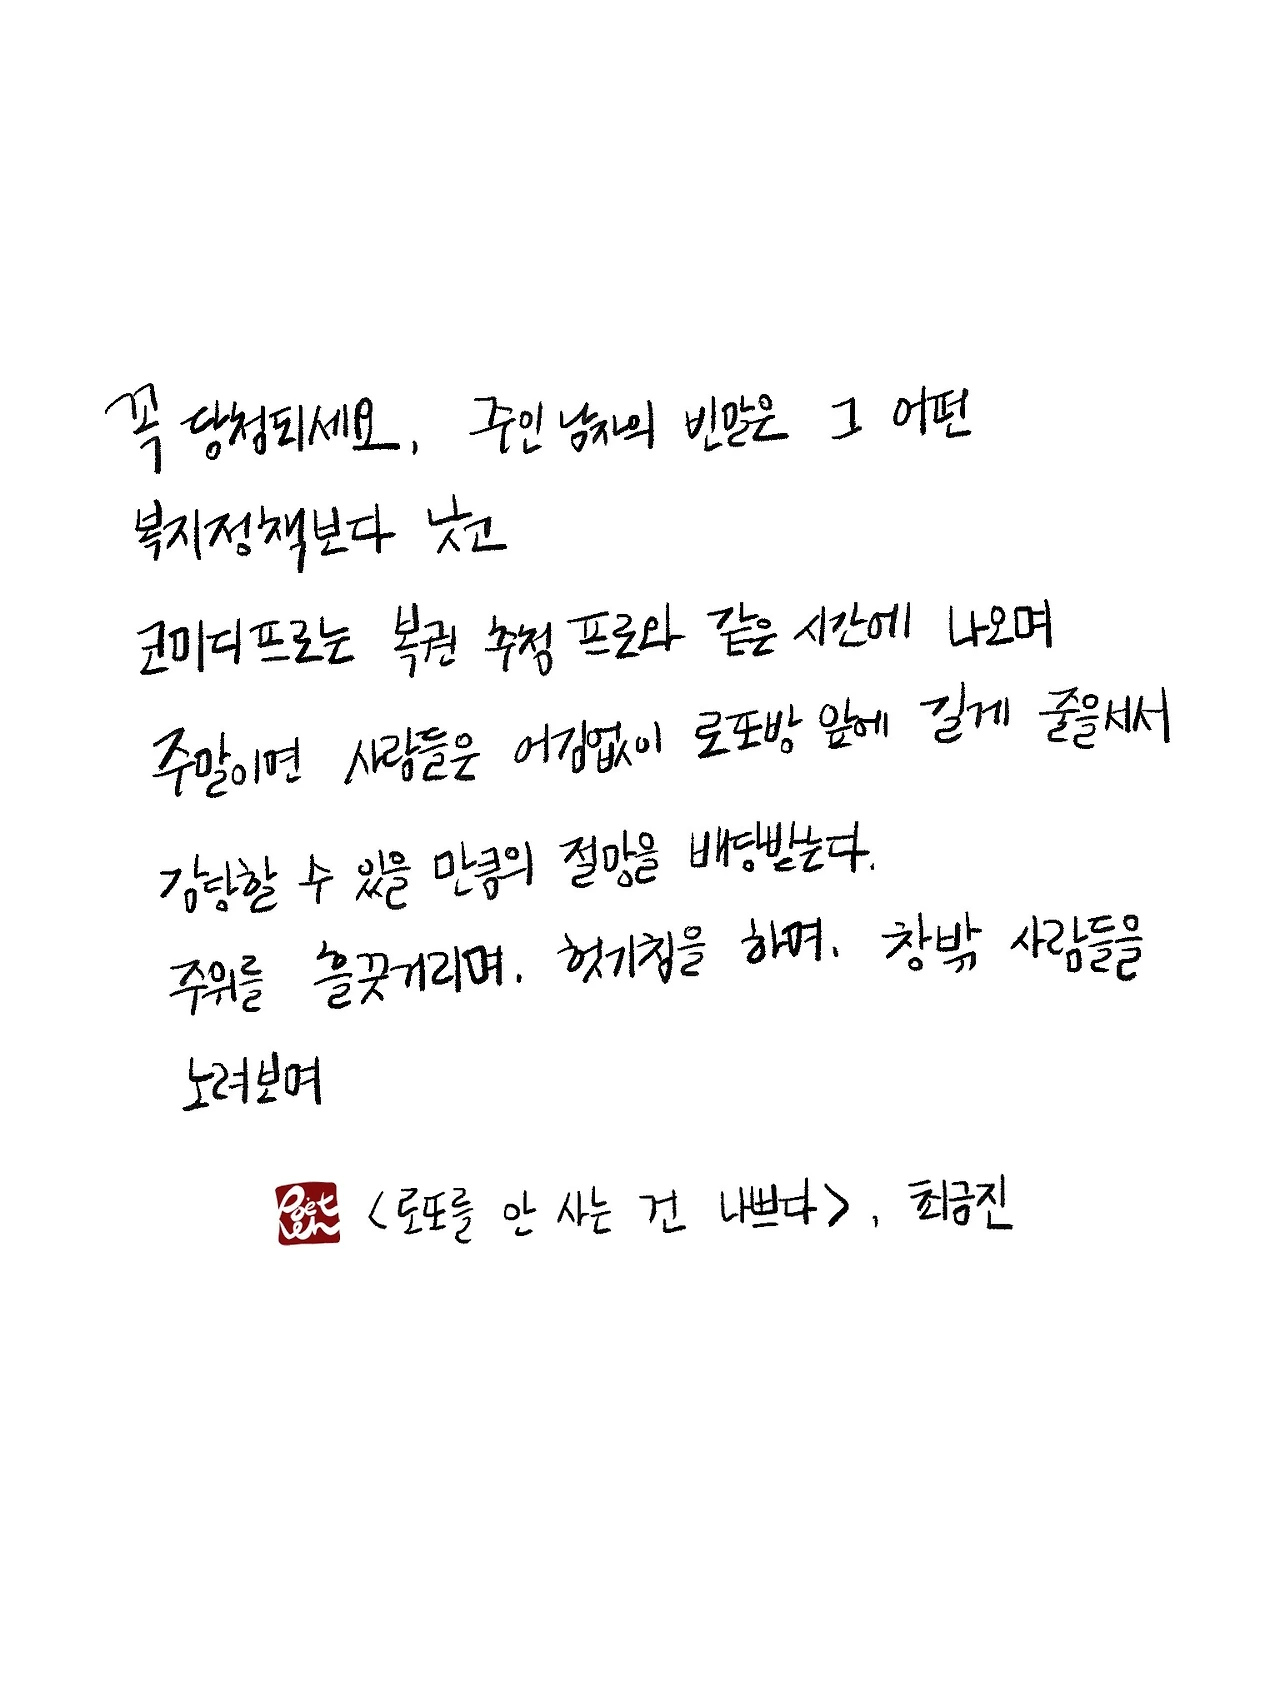 꼭 당첨되세요, 주인 남자의 빈말은 그 어떤
복지정책보다 낫고
코미디프로는 복권 추첨 프로와 같은 시간에 나오며
주말이면 사람들은 어김없이 로또방 앞에 길게 줄을 서서
감당할 수 있을 만큼의 절망을 배당받는다.
주위를 흘끗거리며, 헛기침을 하며, 창밖 사람들을
노려보며
Poet Len
<로또를 안 사는 건 나쁘다>, 최금진